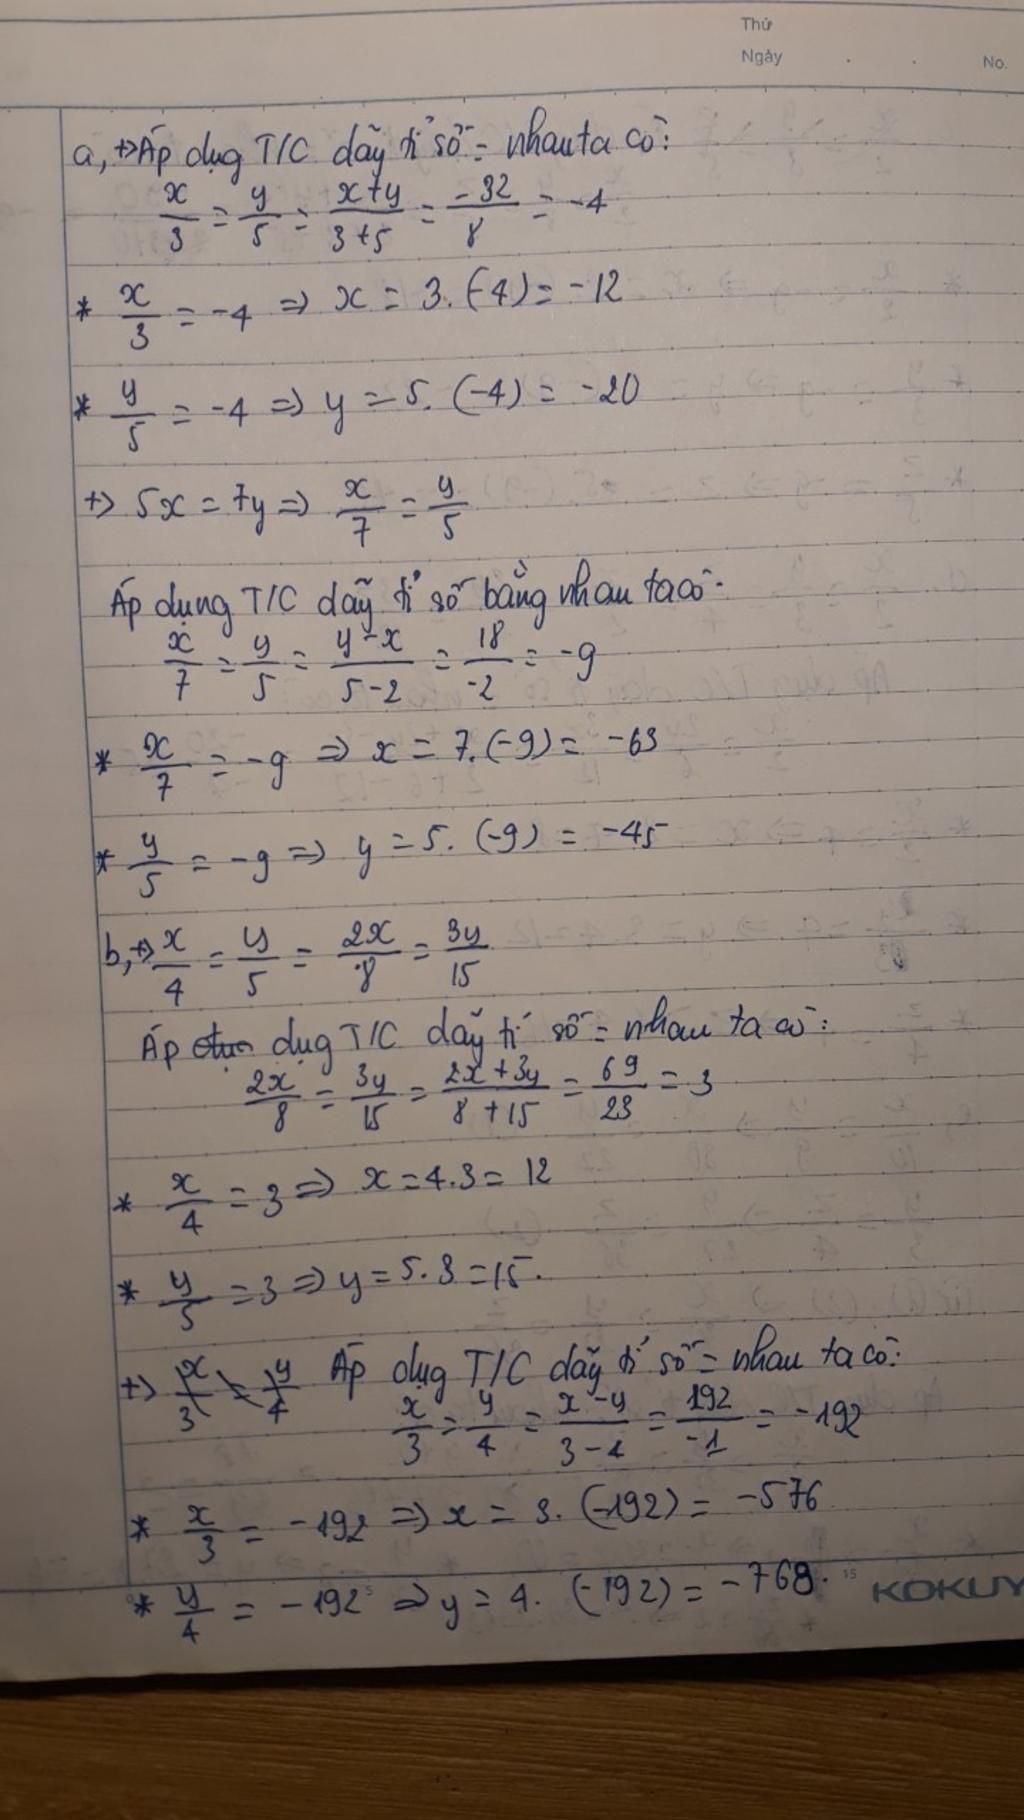 Thứ
Ngày . . No.
a, +> Áp dụg T/C dãy tỉ số = nhau ta có:
x/3 = y/5 = x+y/3+5 = -32/8 = -4
* x/3 = -4 => x = 3.(-4) = -12
* y/5 = -4 => y = 5.(-4) = -20
+> 5x = 7y => x/7 = y/5
Áp dụng T/C dãy tỉ số bằng nhau ta có:
x/7 = y/5 = y-x/5-2 = 18/-2 = -9
* x/7 = -9 => x = 7.(-9) = -63
* y/5 = -9 => y = 5.(-9) = -45
b, +> x/4 = y/5 = 2x/8 = 3y/15
Áp dụg T/C dãy tỉ số = nhau ta có:
2x/8 = 3y/15 = 2x+3y/8+15 = 69/23 = 3
* x/4 = 3 => x = 4.3 = 12
* y/5 = 3 => y = 5.3 = 15.
+> x/3 = y/4 Áp dụg T/C dãy tỉ số = nhau ta có:
x/3 = y/4 = x-y/3-4 = 192/-1 = -192
* x/3 = -192 => x = 3.(-192) = -576
* y/4 = -192 => y = 4.(-192) = -768.
KOKUY